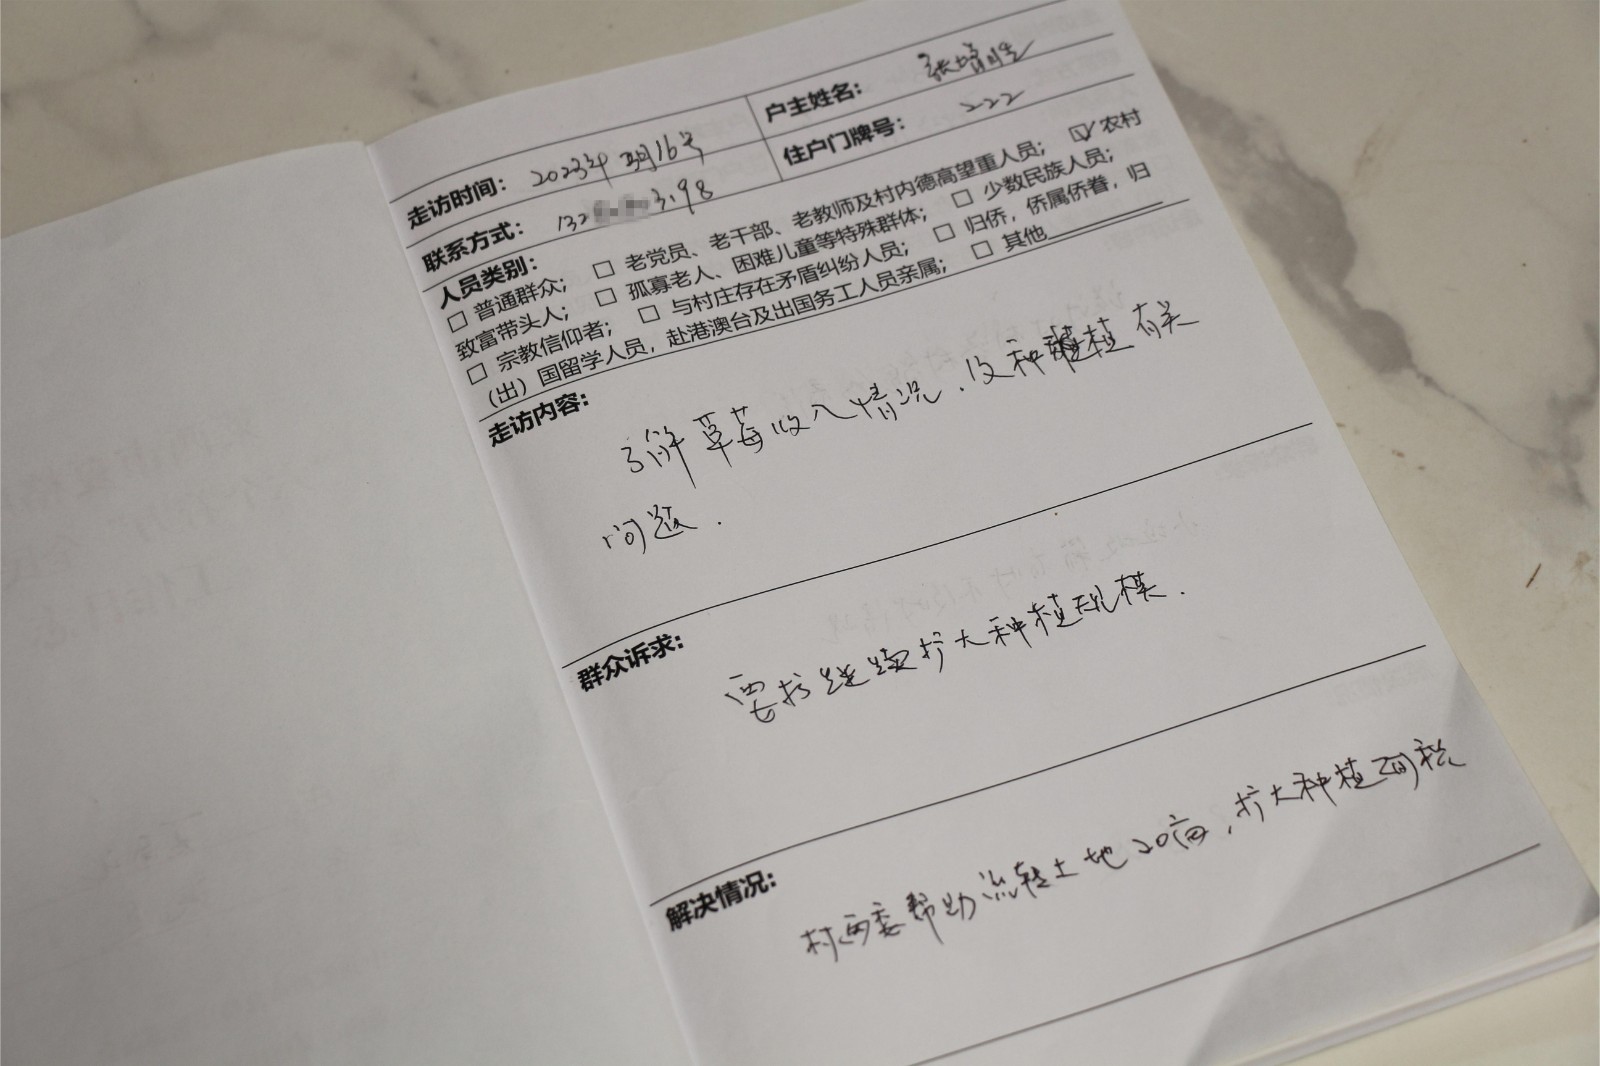 走访时间：2023年3月16号 户主姓名：张增生
联系方式：132 3.98 住户门牌号：222
人员类别：
□ 普通群众； □ 老党员、老干部、老教师及村内德高望重人员； ☑ 农村
致富带头人； □ 孤寡老人、困难儿童等特殊群体； □ 少数民族人员；
□ 宗教信仰者； □ 与村庄存在矛盾纠纷人员； □ 归侨，侨属侨眷，归
（出）国留学人员，赴港澳台及出国务工人员亲属； □ 其他
走访内容：
了解草莓收入情况.及种植有关
问题.
群众诉求：
要求继续扩大种植规模.
解决情况：
村两委帮助流转土地20亩,扩大种植面积